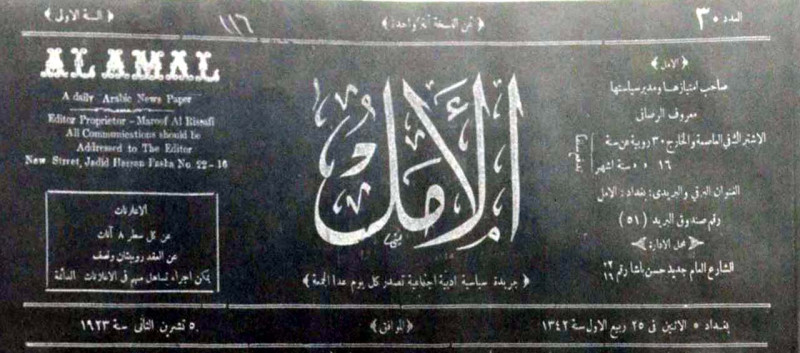 العدد ٣٠
﴿ ثمن النسخة آنة واحدة ﴾
١١٦
﴿ السنة الاولى ﴾
AL AMAL
A daily Arabic News Paper
Editor Proprietor - Maroof Al Rissafi
All Communications should be
Addressed to The Editor
New Street, Jadid Hassan Pasha No. 22-16
الاعلانات
عن كل سطر ٨ آنات
عن العقد روبيتان ونصف
يمكن اجراء تساهل مهم في الاعلانات
الأمل
﴿ جريدة سياسية ادبية اجتماعية تصدر كل يوم عدا الجمعة ﴾
﴿ الامل ﴾
صاحب امتيازها ومدير سياستها
معروف الرصافي
الاشتراك في العاصمة والخارج ٣٠ روبية عن سنة
١٦ » » ستة اشهر
العنوان البرقي والبريدي: بغداد: الامل
رقم صندوق البريد (٥١)
﴿ محل الادارة ﴾
الشارع العام جديد حسن باشا رقم ٢٢/١٦
بغداد * الاثنين في ٢٥ ربيع الاول سنة ١٣٤٢
﴿ الموافق ﴾
٥ تشرين الثاني سنة ١٩٢٣